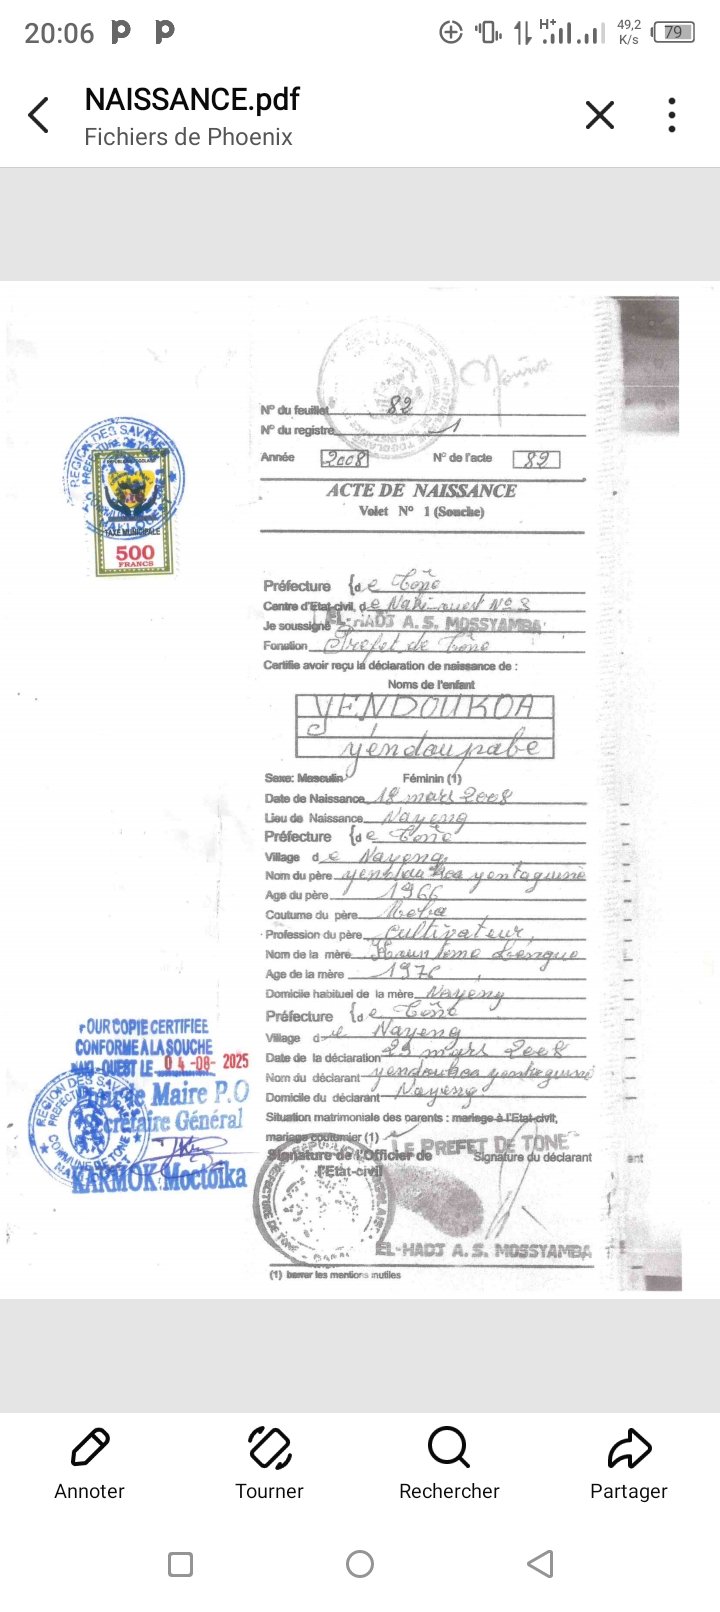 20:06
H+
49,2
K/s
79
NAISSANCE.pdf
Fichiers de Phoenix
N° du feuillet 82
N° du registre 1
Année 2008 N° de l'acte 82
ACTE DE NAISSANCE
Volet N° 1 (Souche)
REGION DES SAVANES
TAXE MUNICIPALE
500
FRANCS
Préfecture {de Tône
Centre d'Etat-civil, de Nano-ouest N° 3
Je soussigné EL-HADJ A. S. MOSSYAMBA
Fonction Prefet de Tône
Certifie avoir reçu la déclaration de naissance de :
Noms de l'enfant
YENDOUKOA
yendoupabe
Sexe: Masculin Féminin (1)
Date de Naissance 18 mars 2008
Lieu de Naissance Nayeng
Préfecture {de Tône
Village de Nayeng
Nom du père yendoukoa yentaguime
Age du père 1966
Coutume du père Moba
Profession du père Cultivateur
Nom de la mère Lengue
Age de la mère 1976
Domicile habituel de la mère Nayeng
Préfecture {de Tône
Village de Nayeng
Date de la déclaration 29 mars 2008
Nom du déclarant yendoukoa yentaguime
Domicile du déclarant Nayeng
Situation matrimoniale des parents : mariage à l'Etat-civil,
mariage coutumier (1)
LE PREFET DE TONE
Signature de l'Officier de Signature du déclarant
l'Etat-civil
EL-HADJ A. S. MOSSYAMBA
(1) barrer les mentions inutiles
POUR COPIE CERTIFIEE
CONFORME A LA SOUCHE
NANO-OUEST LE 04-08-2025
de Maire P.O
Secrétaire Général
KARMOK Moctoïka
Annoter
Tourner
Rechercher
Partager